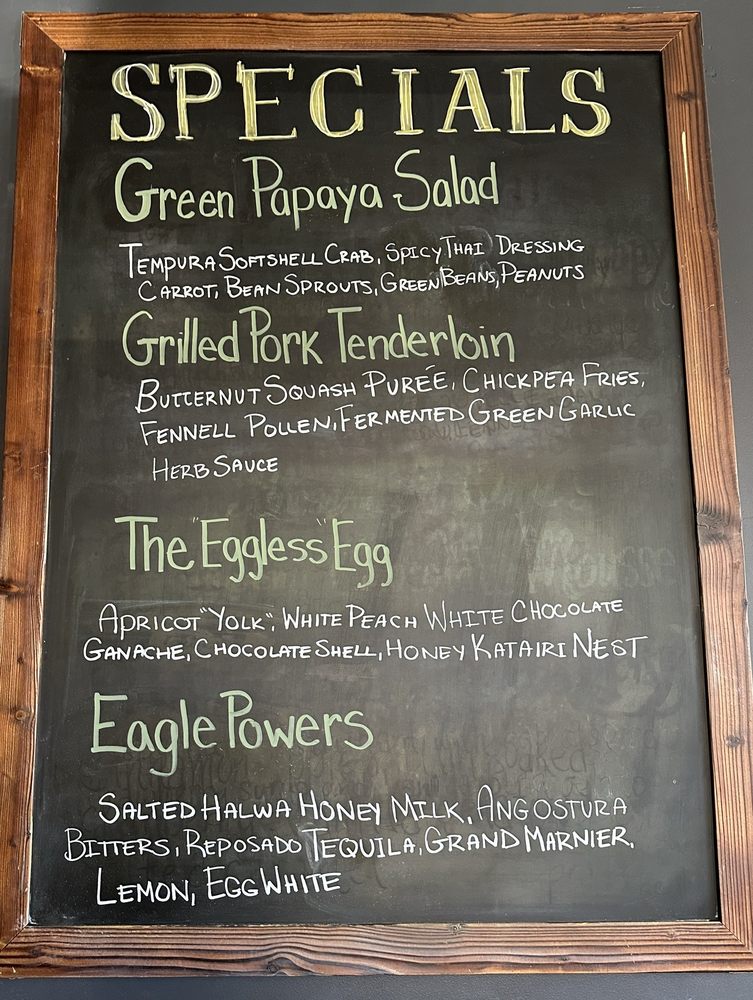 SPECIALS
Green Papaya Salad
TEMPURA SOFTSHELL CRAB, SPICY THAI DRESSING
CARROT, BEAN SPROUTS, GREEN BEANS, PEANUTS
Grilled Pork Tenderloin
BUTTERNUT SQUASH PURÉE, CHICKPEA FRIES,
FENNELL POLLEN, FERMENTED GREEN GARLIC
HERB SAUCE
The "Eggless" Egg
APRICOT "YOLK", WHITE PEACH WHITE CHOCOLATE
GANACHE, CHOCOLATE SHELL, HONEY KATAIRI NEST
Eagle Powers
SALTED HALWA HONEY MILK, ANGOSTURA
BITTERS, REPOSADO TEQUILA, GRAND MARNIER,
LEMON, EGG WHITE